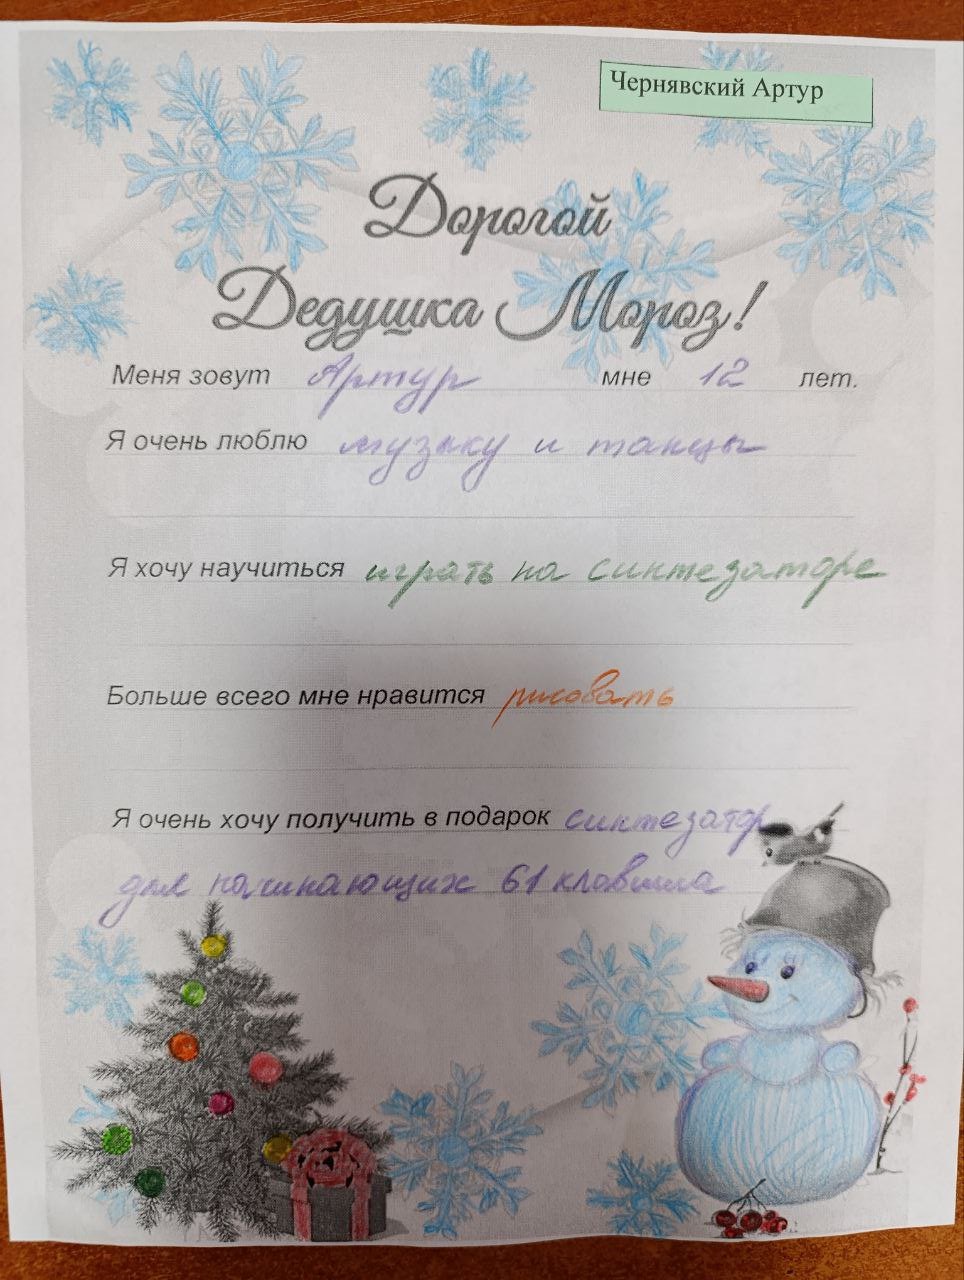 Чернявский Артур
Дорогой
Дедушка Мороз!
Меня зовут Артур мне 12 лет.
Я очень люблю музыку и танцы
Я хочу научиться играть на синтезаторе
Больше всего мне нравится рисовать
Я очень хочу получить в подарок синтезатор
для начинающих 61 клавиша